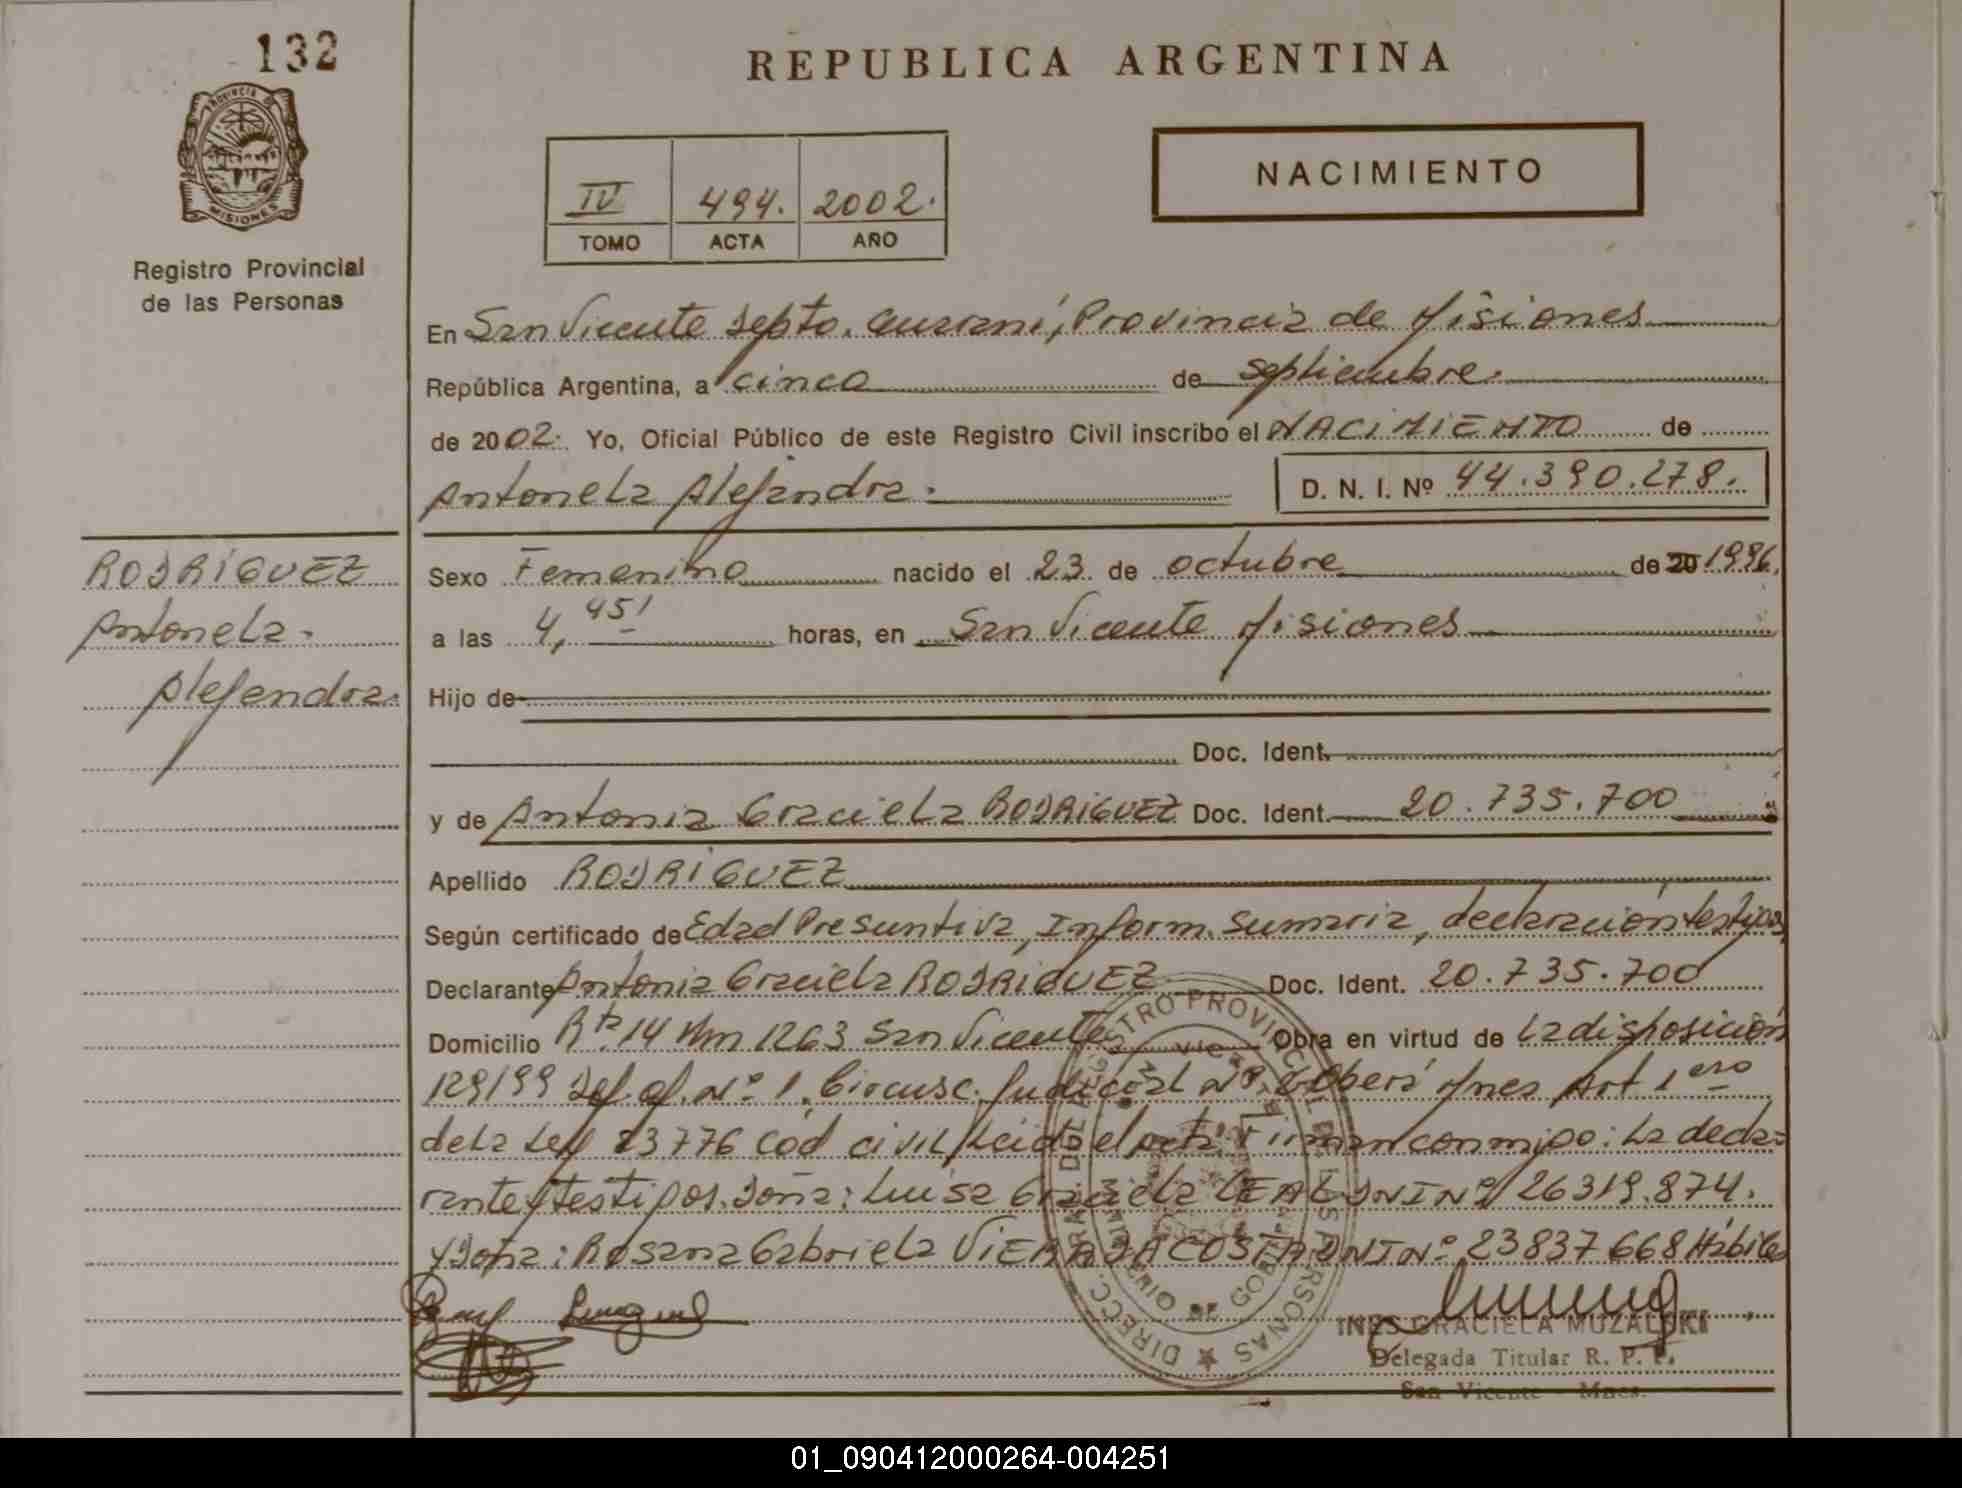 132
REPUBLICA ARGENTINA
PROVINCIA DE
MISIONES
Registro Provincial
de las Personas
NACIMIENTO
IV 494. 2002.
TOMO ACTA AÑO
En San Vicente Depto. Guaraní, Provincia de Misiones
República Argentina, a cinco de septiembre.
de 2002. Yo, Oficial Público de este Registro Civil inscribo el NACIMIENTO de
Antonela Alejandra. D. N. I. Nº 44.390.278.
RODRÍGUEZ
Antonela
Alejandra.
Sexo Femenino nacido el 23 de octubre de 20 1996.
a las 4,45' horas, en San Vicente Misiones
Hijo de
Doc. Ident.
y de Antonia Graciela RODRIGUEZ Doc. Ident. 20.735.700
Apellido RODRÍGUEZ
Según certificado de Edad Presuntiva, Inform. Sumaria, declaración testigos
Declarante Antonia Graciela RODRIGUEZ Doc. Ident. 20.735.700
Domicilio Rta 14 Km 1263 San Vicente Obra en virtud de la disposición
129/99 Def. of. Nº 1. Circunsc. Judicial Nº 2 Oberá Mnes Art 1ero
de la Ley 23776 Cód civil, Leida el acta Firman conmigo: La decla-
rante y testigos. Doña: Luisa Graciela LEAL DNI Nº 26319.874.
y Doña: Rosana Gabriela VIERA DACOSTA DNI Nº 23837668 Hábiles
DIRECC. GRAL. DEL REGISTRO PROVINCIAL DE LAS PERSONAS
MINISTERIO DE GOBIERNO
INES GRACIELA MUZALSKI
Delegada Titular R. P. P.
San Vicente - Mnes.
01_090412000264-004251